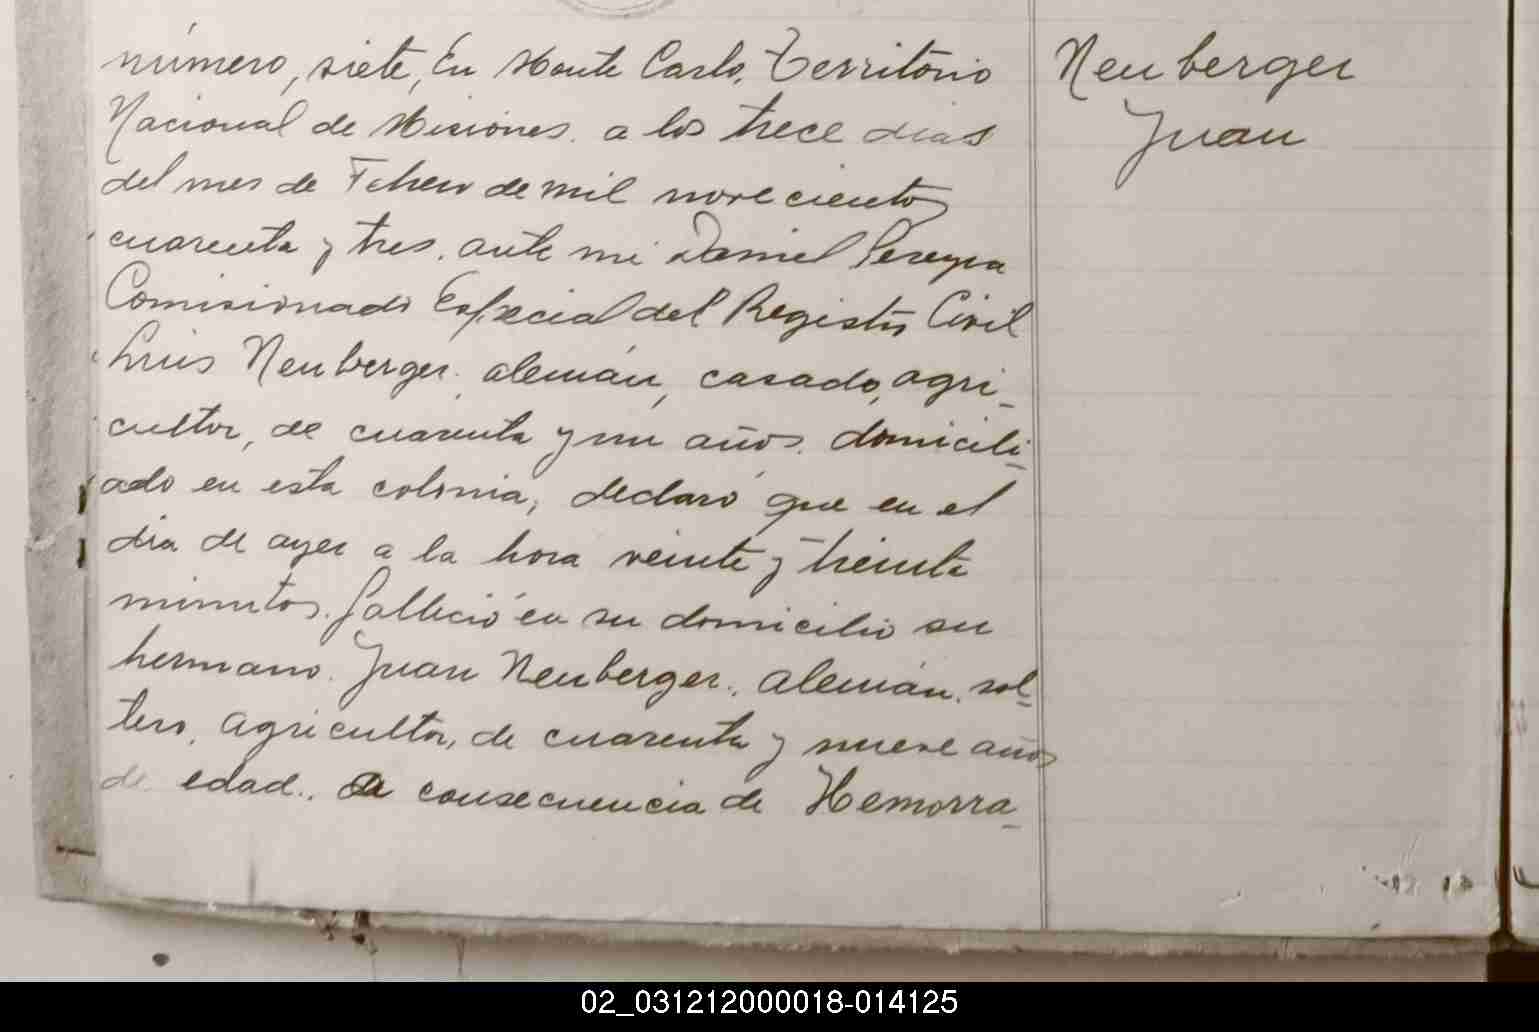 número, siete, En Monte Carlo, Territorio
Nacional de Misiones. a los trece dias
del mes de Febrero de mil novecientos
cuarenta y tres. ante mi Daniel Pereyra
Comisionado Especial del Registro Civil
Luis Neuberger. alemán, casado, agri-
cultor, de cuarenta y un años. domicili-
ado en esta colonia, declaró que en el
dia de ayer a la hora veinte y treinta
minutos. falleció en su domicilio su
hermano. Juan Neuberger., alemán. sol-
tero, agricultor, de cuarenta y nueve años
de edad.. a consecuencia de Hemorra-
Neuberger
Juan
02_031212000018-014125